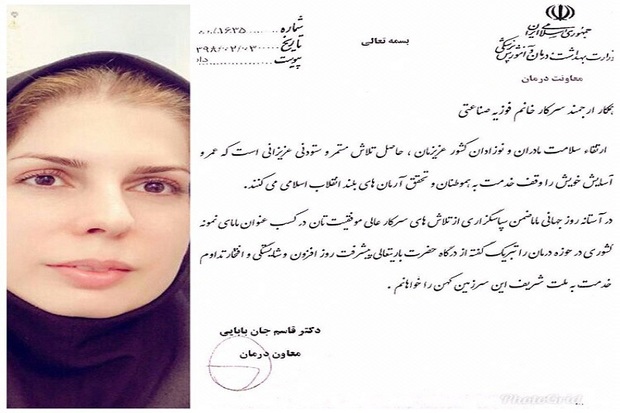 جمهوری اسلامی ایران
وزارت بهداشت، درمان و آموزش پزشکی
معاونت درمان
بسمه تعالی
شماره ۸۰۰/۱۶۳۵
تاریخ ۱۳۹۸/۰۲/۰۳
پیوست
همکار ارجمند سرکار خانم فوزیه صناعتی
ارتقاء سلامت مادران و نوزادان کشور عزیزمان ، حاصل تلاش مستمر و ستودنی عزیزانی است که عمر و
آسایش خویش را وقف خدمت به هموطنان و تحقق آرمان های بلند انقلاب اسلامی می کنند.
در آستانه روز جهانی ماما ضمن سپاسگزاری از تلاش های سرکار عالی موفقیت تان در کسب عنوان مامای نمونه
کشوری در حوزه درمان را تبریک گفته از درگاه حضرت باریتعالی پیشرفت روز افزون و شایستگی و افتخار تداوم
خدمت به ملت شریف این سرزمین کهن را خواهانم .
دکتر قاسم جان بابایی
معاون درمان
PhotoGrid